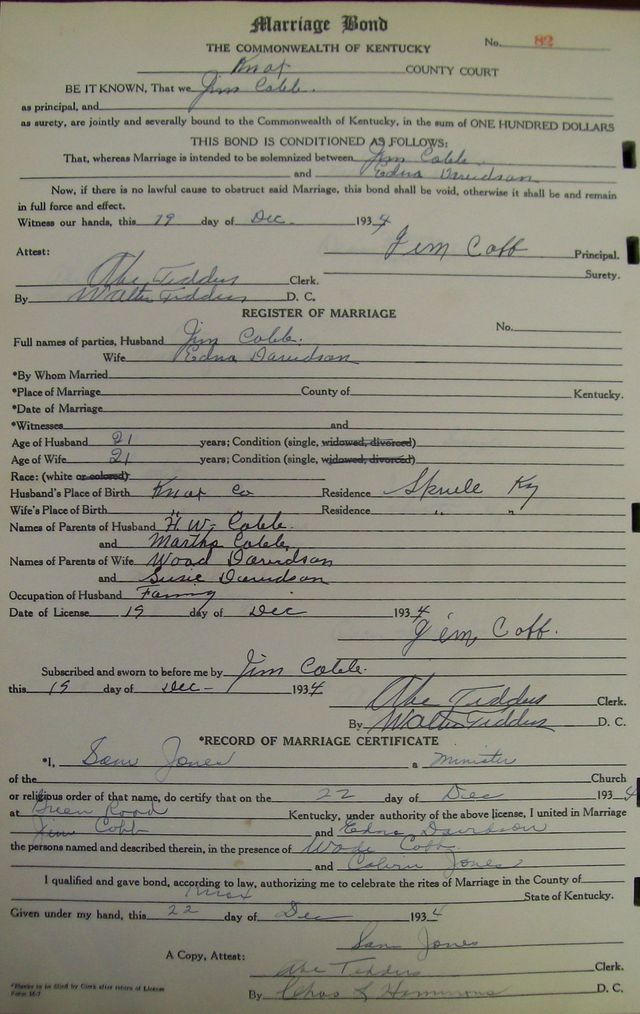 Marriage Bond
THE COMMONWEALTH OF KENTUCKY
No. 82
Knox COUNTY COURT
BE IT KNOWN, That we Jim Cobb.
as principal, and
as surety, are jointly and severally bound to the Commonwealth of Kentucky, in the sum of ONE HUNDRED DOLLARS
THIS BOND IS CONDITIONED AS FOLLOWS:
That, whereas Marriage is intended to be solemnized between Jim Cobb.
and Edna Davidson
Now, if there is no lawful cause to obstruct said Marriage, this bond shall be void, otherwise it shall be and remain
in full force and effect.
Witness our hands, this 19 day of Dec 1934
Attest: Jim Cobb Principal.
Surety.
Abe Tedders Clerk.
By Walter Tedders D. C.
REGISTER OF MARRIAGE
No.
Full names of parties, Husband Jim Cobb.
Wife Edna Davidson
*By Whom Married
*Place of Marriage County of Kentucky.
*Date of Marriage
*Witnesses and
Age of Husband 21 years; Condition (single, widowed, divorced)
Age of Wife 21 years; Condition (single, widowed, divorced)
Race: (white or colored)
Husband's Place of Birth Knox Co Residence Ky
Wife's Place of Birth " " Residence " "
Names of Parents of Husband H. W. Cobb.
and Martha Cobb,
Names of Parents of Wife Wood Davidson
and Susie Davidson
Occupation of Husband
Date of License 19 day of Dec 1934
Jim Cobb.
Subscribed and sworn to before me by Jim Cobb.
this 19 day of Dec- 1934
Abe Tedders Clerk.
By Walter Tedders D. C.
*RECORD OF MARRIAGE CERTIFICATE
*I, Sam Jones a Minister
of the Church
or religious order of that name, do certify that on the 22 day of Dec 1934
at Green Road Kentucky, under authority of the above license, I united in Marriage
Jim Cobb and Edna Davidson
the persons named and described therein, in the presence of Wade Cobb
and Calvin Jones
I qualified and gave bond, according to law, authorizing me to celebrate the rites of Marriage in the County of
Knox State of Kentucky.
Given under my hand, this 22 day of Dec 1934
Sam Jones
A Copy, Attest: Abe Tedders Clerk.
By Chas L Hammons D. C.
*Blanks to be filled by Clerk after return of License